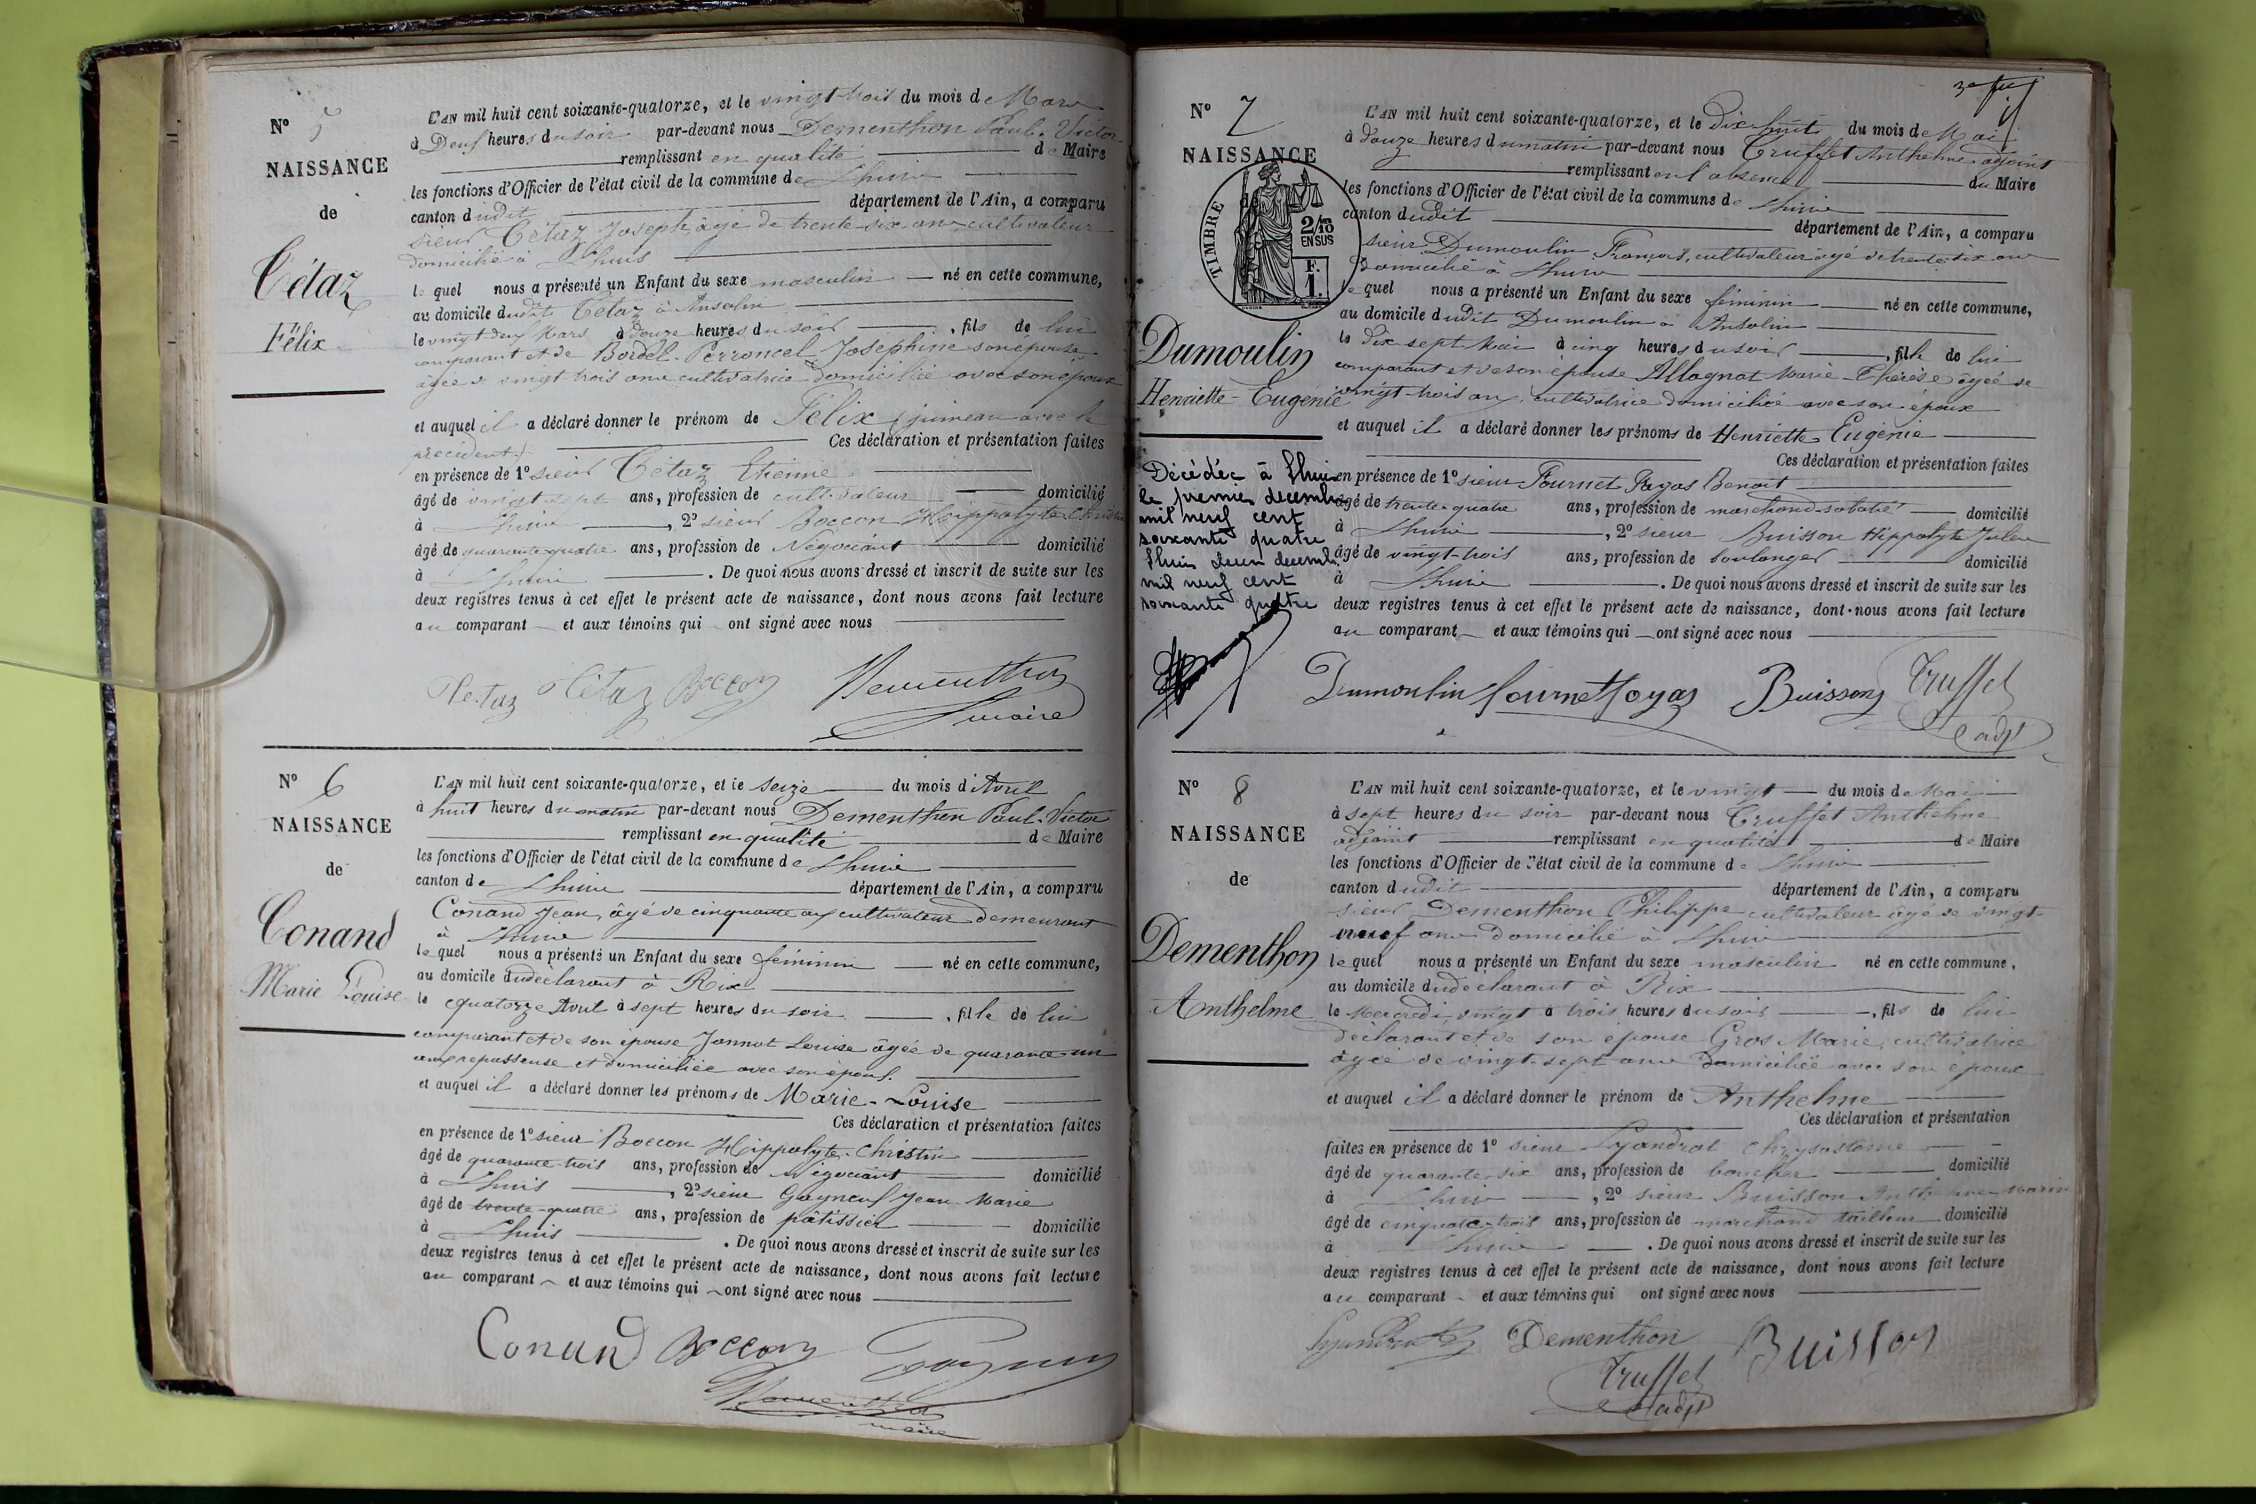 N° 5
NAISSANCE
de
Cétaz
Félix
L'AN mil huit cent soixante-quatorze, et le vingt trois du mois de Mars
à Deuf heures du soir par-devant nous Dementhon Paul-Victor
remplissant en qualité de Maire
les fonctions d'Officier de l'état civil de la commune de Lhuis
canton dudit département de l'Ain, a comparu
sieur Cétaz Joseph âgé de trente six ans cultivateur
domicilié à Lhuis
lequel nous a présenté un Enfant du sexe masculin né en cette commune,
au domicile dudit Cétaz à Ansolin
le vingt deux Mars à douze heures du soir, fils de lui
comparant et de Bordel-Perroncel Joséphine son épouse
âgée de vingt trois ans cultivatrice domiciliée avec son époux
et auquel il a déclaré donner le prénom de Félix (jumeau avec le
précédent) Ces déclaration et présentation faites
en présence de 1° sieur Cétaz Etienne
âgé de vingt sept ans, profession de cultivateur domicilié
à Lhuis, 2° sieur Boccon Hippolyte Christin
âgé de quarante quatre ans, profession de Négociant domicilié
à Lhuis. De quoi nous avons dressé et inscrit de suite sur les
deux registres tenus à cet effet le présent acte de naissance, dont nous avons fait lecture
au comparant et aux témoins qui ont signé avec nous
Cetaz Cétaz Boccon Dementhon
maire
N° 6
NAISSANCE
de
Conand
Marie Louise
L'AN mil huit cent soixante-quatorze, et le seize du mois d'Avril
à huit heures du matin par-devant nous Dementhon Paul-Victor
remplissant en qualité de Maire
les fonctions d'Officier de l'état civil de la commune de Lhuis
canton de Lhuis département de l'Ain, a comparu
Conand Jean, âgé de cinquante ans cultivateur demeurant
à Lhuis
lequel nous a présenté un Enfant du sexe féminin né en cette commune,
au domicile du déclarant à Rix
le quatorze Avril à sept heures du soir, fille de lui
comparant et de son épouse Jannot Louise âgée de quarante un
ans repasseuse et domiciliée avec son époux.
et auquel il a déclaré donner les prénoms de Marie-Louise
Ces déclaration et présentation faites
en présence de 1° sieur Boccon Hippolyte-Christin
âgé de quarante trois ans, profession de négociant domicilié
à Lhuis, 2° sieur Gayneuf Jean-Marie
âgé de trente-quatre ans, profession de pâtissier domicilié
à Lhuis. De quoi nous avons dressé et inscrit de suite sur les
deux registres tenus à cet effet le présent acte de naissance, dont nous avons fait lecture
au comparant et aux témoins qui ont signé avec nous
Conand Boccon
Dementhon
maire
N° 7
NAISSANCE
TIMBRE
2/10 EN SUS
F. 1.
Dumoulin
Henriette-Eugénie
Décédée à Lhuis
le premier décembre
mil neuf cent
soixante quatre
Lhuis deux décembre
mil neuf cent
soixante quatre
L'AN mil huit cent soixante-quatorze, et le Dix-huit du mois de Mai
à douze heures du matin par-devant nous Truffet Anthelme adjoint
remplissant en l'absence du Maire
les fonctions d'Officier de l'état civil de la commune de Lhuis
canton dudit département de l'Ain, a comparu
sieur Dumoulin François, cultivateur âgé de trente six ans
domicilié à Lhuis
lequel nous a présenté un Enfant du sexe féminin né en cette commune,
au domicile dudit Dumoulin à Ansolin
le Dix sept Mai à cinq heures du soir, fille de lui
comparant et de son épouse Allognat Marie-Thérèse âgée de
vingt-trois ans, cultivatrice domiciliée avec son époux
et auquel il a déclaré donner les prénoms de Henriette Eugénie
Ces déclaration et présentation faites
en présence de 1° sieur Fournet Fayas Benoit
âgé de trente quatre ans, profession de marchand-sabotier domicilié
à Lhuis, 2° sieur Buisson Hippolyte Jules
âgé de vingt-trois ans, profession de boulanger domicilié
à Lhuis. De quoi nous avons dressé et inscrit de suite sur les
deux registres tenus à cet effet le présent acte de naissance, dont nous avons fait lecture
au comparant et aux témoins qui ont signé avec nous
Dumoulin fournet foyas Buisson Truffet
adjt
N° 8
NAISSANCE
de
Dementhon
Anthelme
L'AN mil huit cent soixante-quatorze, et le vingt du mois de Mai
à sept heures du soir par-devant nous Truffet Anthelme
adjoint remplissant en qualité de Maire
les fonctions d'Officier de l'état civil de la commune de Lhuis
canton dudit département de l'Ain, a comparu
sieur Dementhon Philippe cultivateur âgé de vingt-
neuf ans domicilié à Lhuis
lequel nous a présenté un Enfant du sexe masculin né en cette commune,
au domicile du déclarant à Rix
le Mercredi vingt à trois heures du soir, fils de lui
déclarant et de son épouse Gros Marie, cultivatrice
âgée de vingt-sept ans domiciliée avec son époux
et auquel il a déclaré donner le prénom de Anthelme
Ces déclaration et présentation
faites en présence de 1° sieur Lyandrat Chrysostome
âgé de quarante-six ans, profession de boucher domicilié
à Lhuis, 2° sieur Buisson Anthelme-Marin
âgé de cinquante-trois ans, profession de marchand tailleur domicilié
à Lhuis. De quoi nous avons dressé et inscrit de suite sur les
deux registres tenus à cet effet le présent acte de naissance, dont nous avons fait lecture
au comparant et aux témoins qui ont signé avec nous
Lyandrat Dementhon Buisson
Truffet
adjt